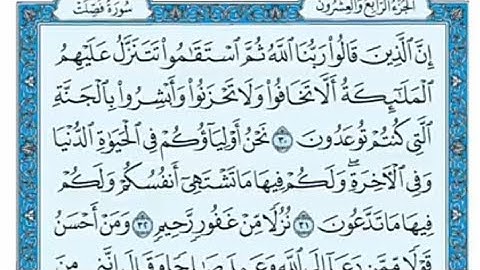 الجزء الرابع والعشرون
سورة فصلت
إِنَّ ٱلَّذِينَ قَالُوا۟ رَبُّنَا ٱللَّهُ ثُمَّ ٱسْتَقَٰمُوا۟ تَتَنَزَّلُ عَلَيْهِمُ
ٱلْمَلَٰٓئِكَةُ أَلَّا تَخَافُوا۟ وَلَا تَحْزَنُوا۟ وَأَبْشِرُوا۟ بِٱلْجَنَّةِ
ٱلَّتِى كُنتُمْ تُوعَدُونَ ٣٠ نَحْنُ أَوْلِيَآؤُكُمْ فِى ٱلْحَيَوٰةِ ٱلدُّنْيَا
وَفِى ٱلْءَاخِرَةِ ۖ وَلَكُمْ فِيهَا مَا تَشْتَهِىٓ أَنفُسُكُمْ وَلَكُمْ
فِيهَا مَا تَدَّعُونَ ٣١ نُزُلًا مِّنْ غَفُورٍ رَّحِيمٍ ٣٢ وَمَنْ أَحْسَنُ
قَوْلًا مِّمَّن دَعَآ إِلَى ٱللَّهِ وَعَمِلَ صَٰلِحًا وَقَالَ إِنَّنِى مِنَ